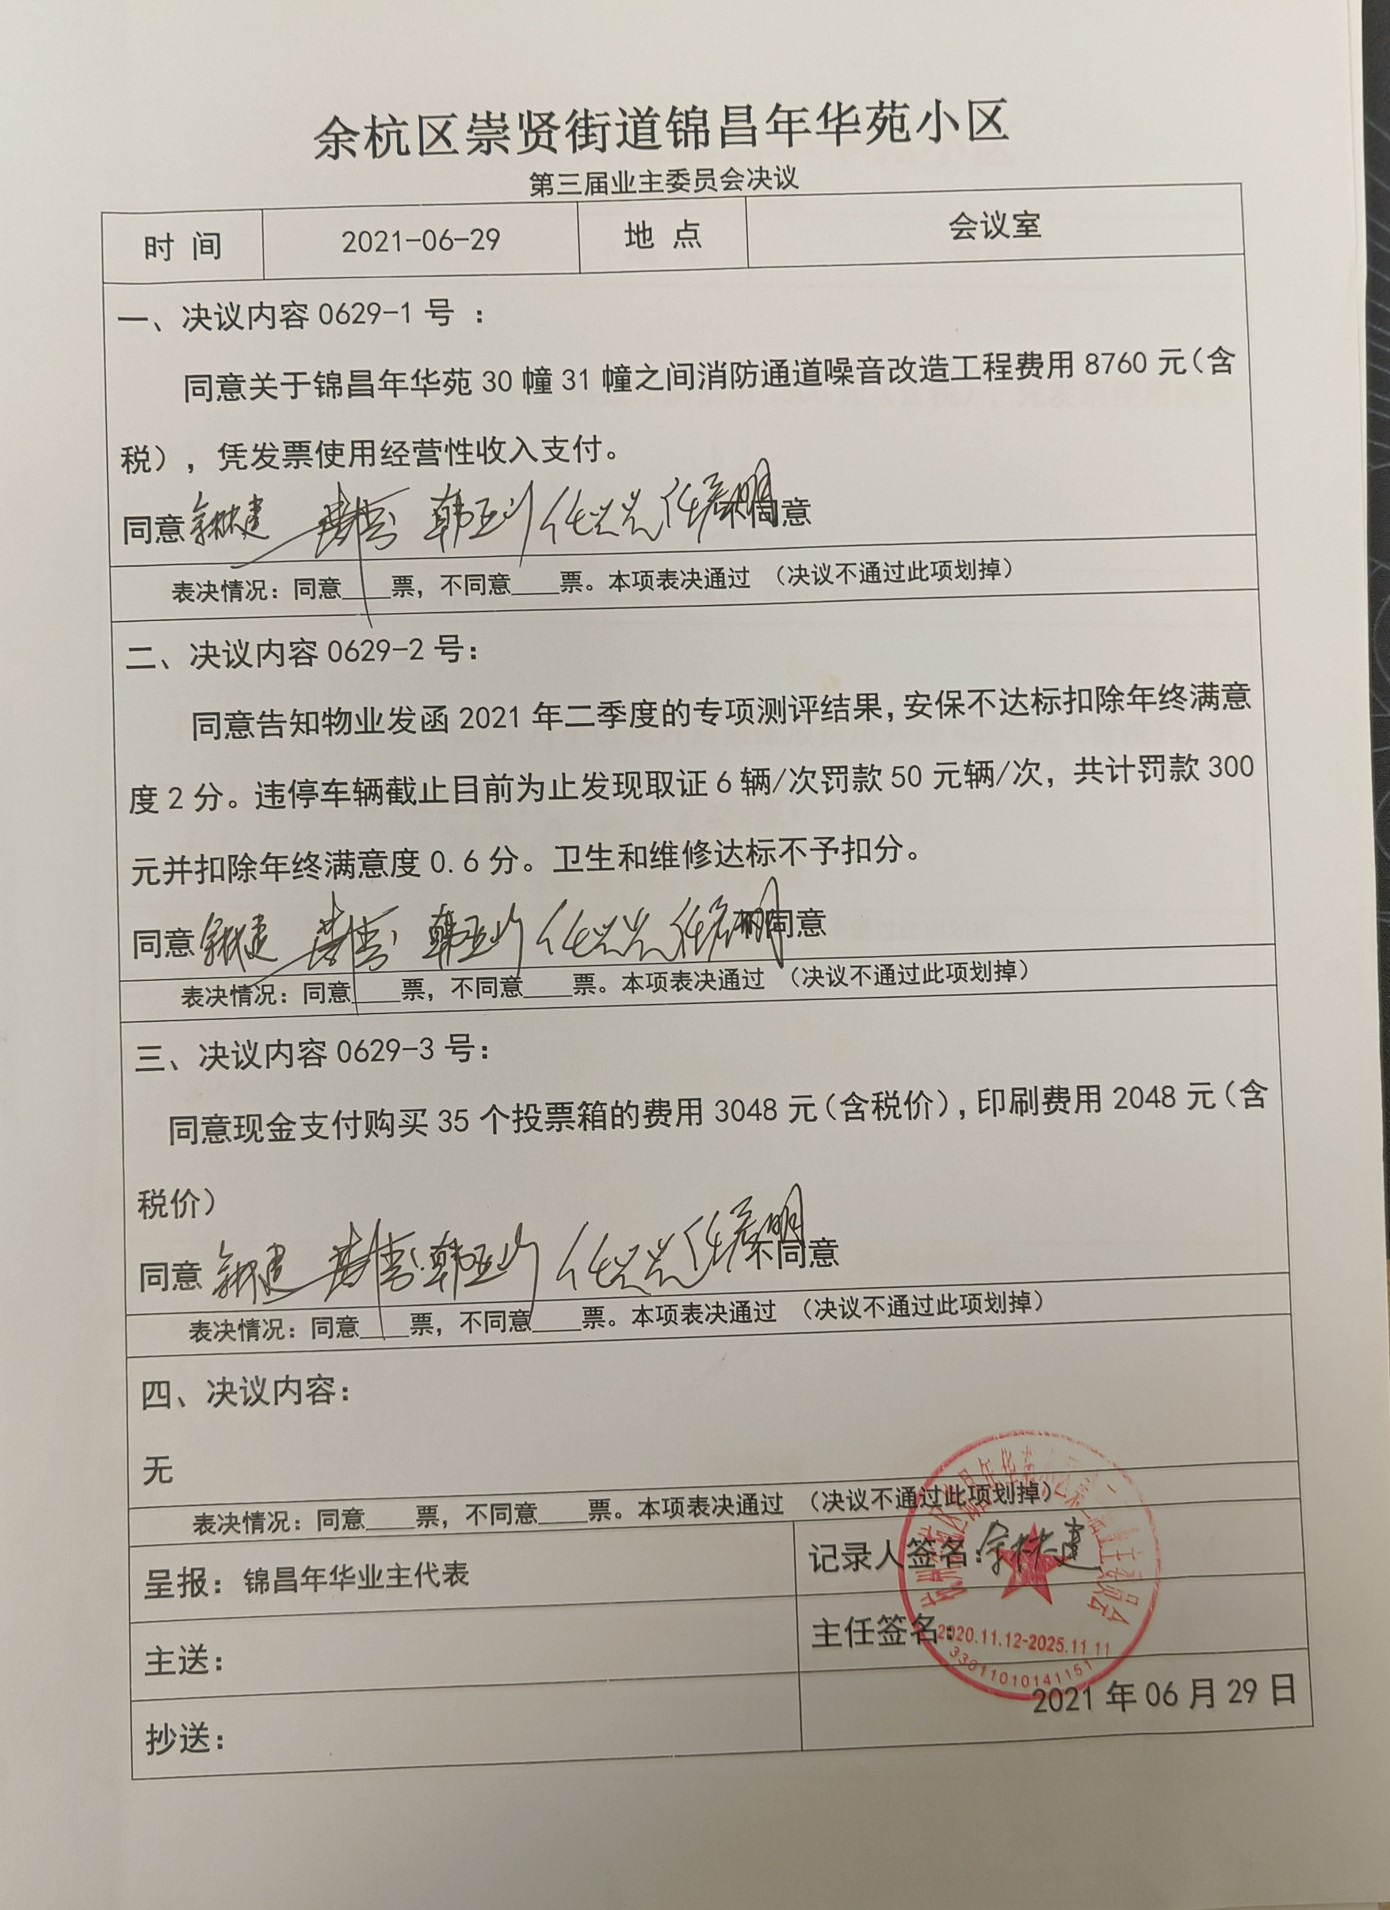 余杭区崇贤街道锦昌年华苑小区
第三届业主委员会决议
时 间 2021-06-29 地 点 会议室
一、决议内容 0629-1 号 :
同意关于锦昌年华苑 30 幢 31 幢之间消防通道噪音改造工程费用 8760 元(含
税),凭发票使用经营性收入支付。
同意 韩亚 不同意
表决情况:同意____票,不同意____票。本项表决通过 (决议不通过此项划掉)
二、决议内容 0629-2 号:
同意告知物业发函 2021 年二季度的专项测评结果,安保不达标扣除年终满意
度 2 分。违停车辆截止目前为止发现取证 6 辆/次罚款 50 元辆/次,共计罚款 300
元并扣除年终满意度 0.6 分。卫生和维修达标不予扣分。
同意 不同意
表决情况:同意____票,不同意____票。本项表决通过 (决议不通过此项划掉)
三、决议内容 0629-3 号:
同意现金支付购买 35 个投票箱的费用 3048 元(含税价),印刷费用 2048 元(含
税价)
同意 不同意
表决情况:同意____票,不同意____票。本项表决通过 (决议不通过此项划掉)
四、决议内容:
无
表决情况:同意____票,不同意____票。本项表决通过 (决议不通过此项划掉)
呈报:锦昌年华业主代表 记录人签名:
主送: 主任签名:
2020.11.12-2025.11.11
33011010141151
2021 年 06 月 29 日
抄送: